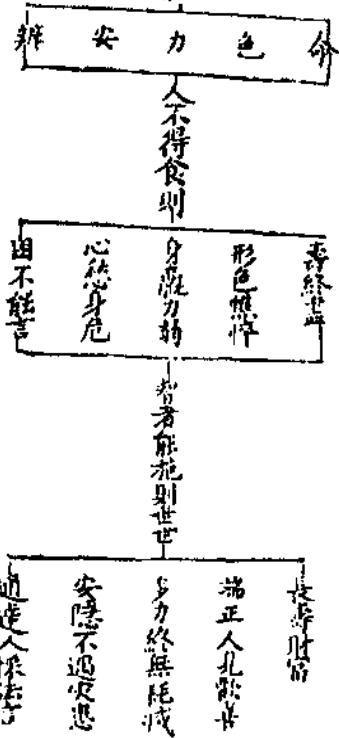 命 色 力 安 辨
人不得食則
壽終
形色憔悴
身羸力弱
心愁身危
困不能言
智者能施則世世
長壽財富
端正人見歡喜
多力終無耗減
安隱不遇災患
通達人法言